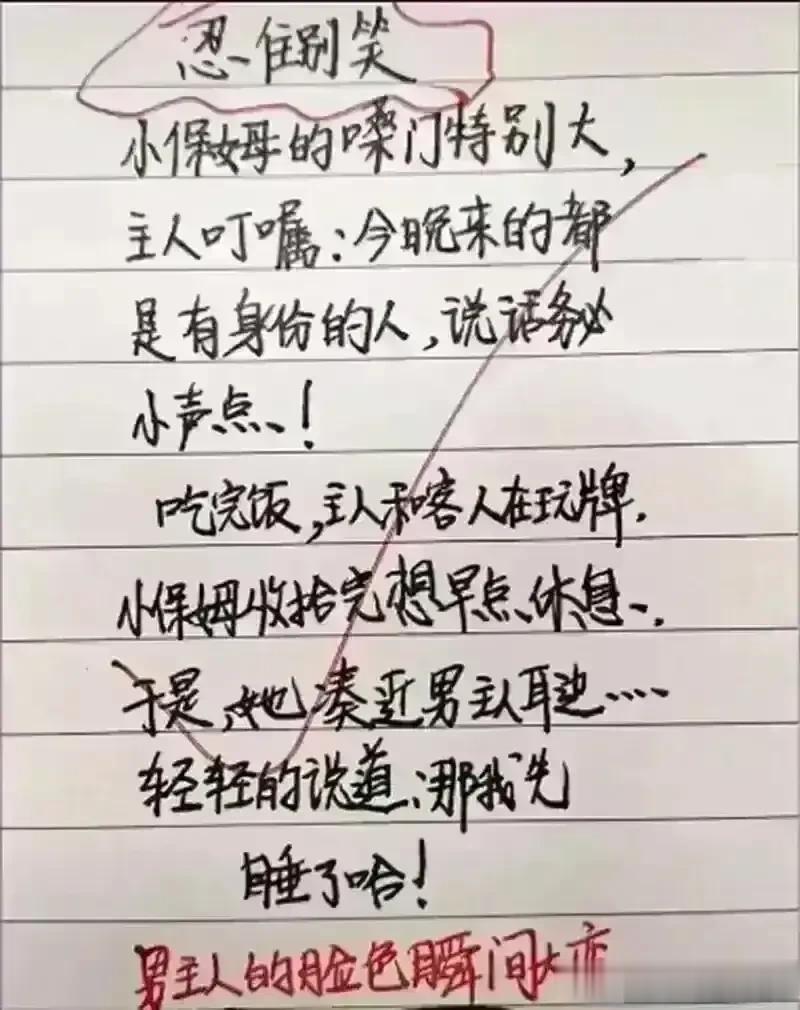 忍住别笑
小保姆的嗓门特别大，
主人叮嘱：今晚来的都
是有身份的人，说话务必
小声点！
吃完饭，主人和客人在玩牌．
小保姆收拾完想早点休息．
于是，她凑近男主人耳边……
轻轻的说道：那我先
睡了哈！
男主人的脸色瞬间大变